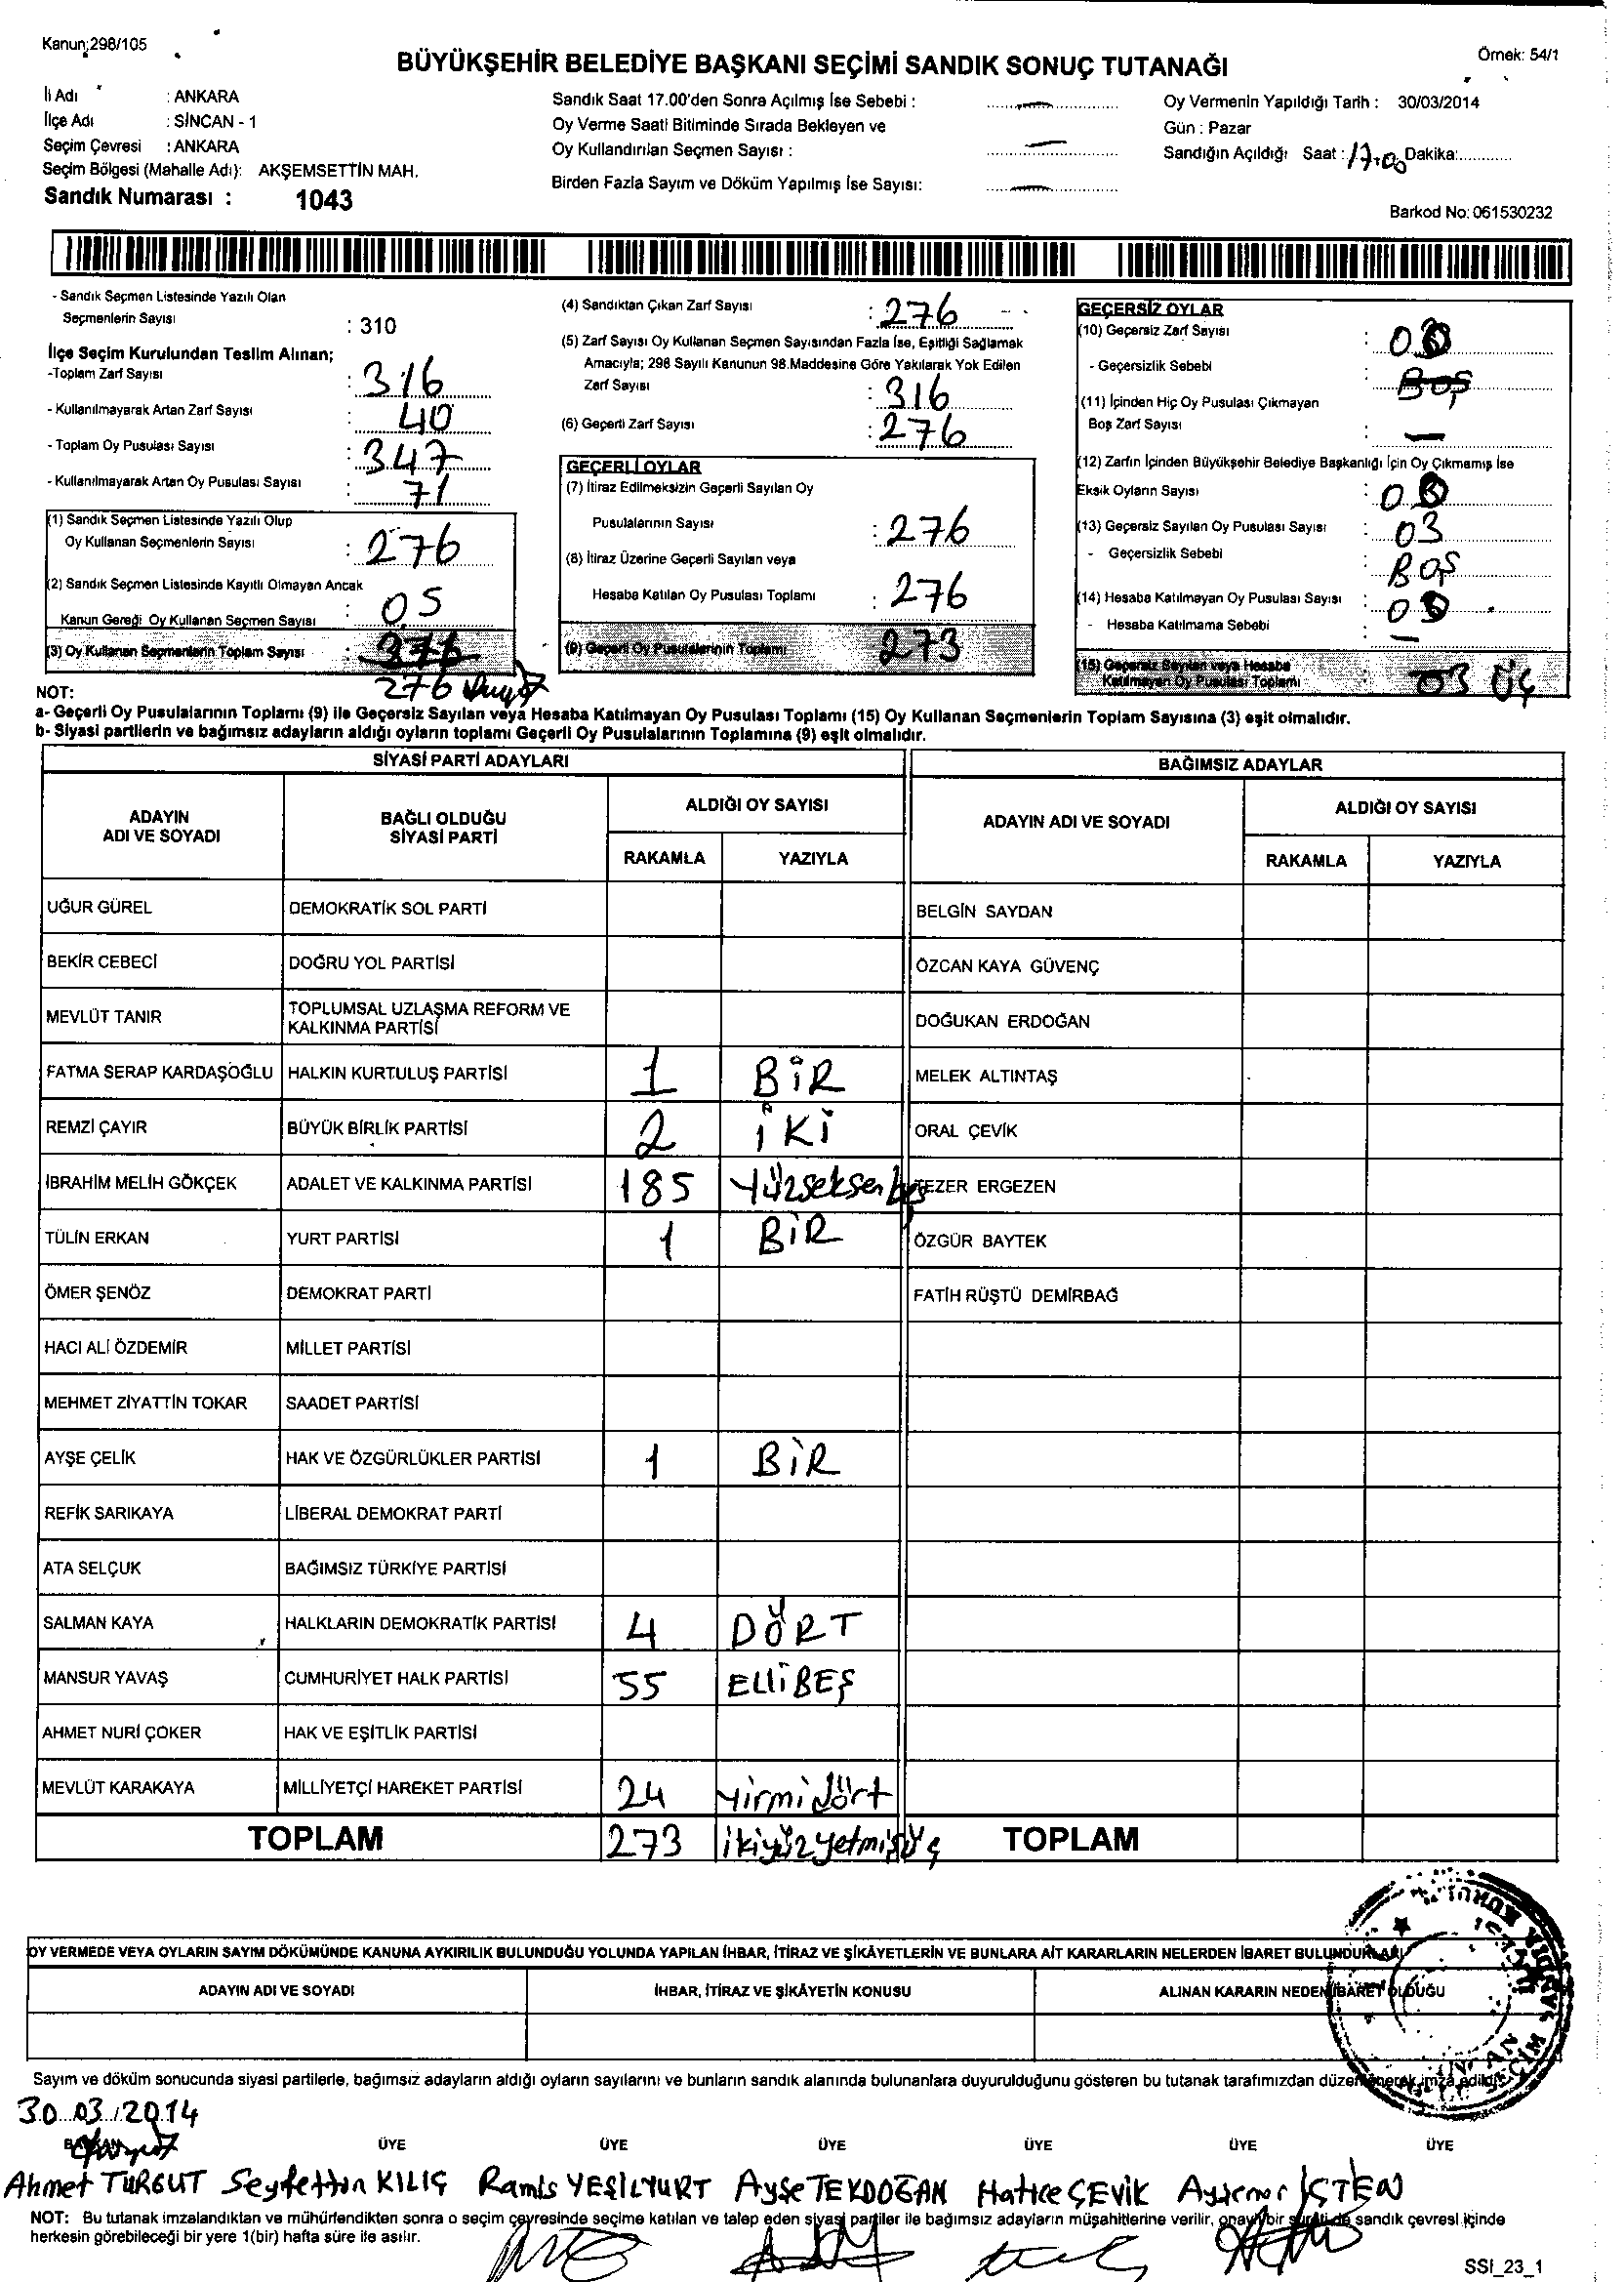 Kanun;298/105
Örnek: 54/1
BÜYÜKŞEHİR BELEDİYE BAŞKANI SEÇİMİ SANDIK SONUÇ TUTANAĞI
İli Adı : ANKARA
İlçe Adı : SİNCAN - 1
Seçim Çevresi : ANKARA
Seçim Bölgesi (Mahalle Adı): AKŞEMSETTİN MAH.
Sandık Numarası : 1043
Sandık Saat 17.00'den Sonra Açılmış İse Sebebi : —
Oy Verme Saati Bitiminde Sırada Bekleyen ve
Oy Kullandırılan Seçmen Sayısı : —
Birden Fazla Sayım ve Döküm Yapılmış İse Sayısı: —
Oy Vermenin Yapıldığı Tarih : 30/03/2014
Gün : Pazar
Sandığın Açıldığı Saat : 17.00 Dakika:............
Barkod No: 061530232
- Sandık Seçmen Listesinde Yazılı Olan
Seçmenlerin Sayısı : 310
İlçe Seçim Kurulundan Teslim Alınan;
-Toplam Zarf Sayısı : 316
- Kullanılmayarak Artan Zarf Sayısı : 40
- Toplam Oy Pusulası Sayısı : 347
- Kullanılmayarak Artan Oy Pusulası Sayısı : 71
(1) Sandık Seçmen Listesinde Yazılı Olup
Oy Kullanan Seçmenlerin Sayısı : 276
(2) Sandık Seçmen Listesinde Kayıtlı Olmayan Ancak
Kanun Gereği Oy Kullanan Seçmen Sayısı : 05
(3) Oy Kullanan Seçmenlerin Toplam Sayısı :
276
(4) Sandıktan Çıkan Zarf Sayısı : 276
(5) Zarf Sayısı Oy Kullanan Seçmen Sayısından Fazla İse, Eşitliği Sağlamak
Amacıyla; 298 Sayılı Kanunun 98.Maddesine Göre Yakılarak Yok Edilen
Zarf Sayısı : 316
(6) Geçerli Zarf Sayısı : 276
GEÇERLİ OYLAR
(7) İtiraz Edilmeksizin Geçerli Sayılan Oy
Pusulalarının Sayısı : 276
(8) İtiraz Üzerine Geçerli Sayılan veya
Hesaba Katılan Oy Pusulası Toplamı : 276
(9) Geçerli Oy Pusulalarının Toplamı 273
GEÇERSİZ OYLAR
(10) Geçersiz Zarf Sayısı : 00
- Geçersizlik Sebebi : BOŞ
(11) İçinden Hiç Oy Pusulası Çıkmayan
Boş Zarf Sayısı : —
(12) Zarfın İçinden Büyükşehir Belediye Başkanlığı İçin Oy Çıkmamış İse
Eksik Oyların Sayısı : 00
(13) Geçersiz Sayılan Oy Pusulası Sayısı : 03
- Geçersizlik Sebebi : BOŞ
(14) Hesaba Katılmayan Oy Pusulası Sayısı : 00
- Hesaba Katılmama Sebebi : —
(15) Geçersiz Sayılan veya Hesaba
Katılmayan Oy Pusulası Toplamı 03 üç
NOT:
a- Geçerli Oy Pusulalarının Toplamı (9) ile Geçersiz Sayılan veya Hesaba Katılmayan Oy Pusulası Toplamı (15) Oy Kullanan Seçmenlerin Toplam Sayısına (3) eşit olmalıdır.
b- Siyasi partilerin ve bağımsız adayların aldığı oyların toplamı Geçerli Oy Pusulalarının Toplamına (9) eşit olmalıdır.
SİYASİ PARTİ ADAYLARI
BAĞIMSIZ ADAYLAR
ADAYIN ADI VE SOYADI
BAĞLI OLDUĞU SİYASİ PARTİ
ALDIĞI OY SAYISI
RAKAMLA YAZIYLA
ADAYIN ADI VE SOYADI
ALDIĞI OY SAYISI
RAKAMLA YAZIYLA
UĞUR GÜREL DEMOKRATİK SOL PARTİ BELGİN SAYDAN
BEKİR CEBECİ DOĞRU YOL PARTİSİ ÖZCAN KAYA GÜVENÇ
MEVLÜT TANIR TOPLUMSAL UZLAŞMA REFORM VE KALKINMA PARTİSİ DOĞUKAN ERDOĞAN
FATMA SERAP KARDAŞOĞLU HALKIN KURTULUŞ PARTİSİ 1 BİR MELEK ALTINTAŞ
REMZİ ÇAYIR BÜYÜK BİRLİK PARTİSİ 2 İKİ ORAL ÇEVİK
İBRAHİM MELİH GÖKÇEK ADALET VE KALKINMA PARTİSİ 185 Yüzseksenbeş TEZER ERGEZEN
TÜLİN ERKAN YURT PARTİSİ 1 BİR ÖZGÜR BAYTEK
ÖMER ŞENÖZ DEMOKRAT PARTİ FATİH RÜŞTÜ DEMİRBAĞ
HACI ALİ ÖZDEMİR MİLLET PARTİSİ
MEHMET ZİYATTİN TOKAR SAADET PARTİSİ
AYŞE ÇELİK HAK VE ÖZGÜRLÜKLER PARTİSİ 1 BİR
REFİK SARIKAYA LİBERAL DEMOKRAT PARTİ
ATA SELÇUK BAĞIMSIZ TÜRKİYE PARTİSİ
SALMAN KAYA HALKLARIN DEMOKRATİK PARTİSİ 4 DÖRT
MANSUR YAVAŞ CUMHURİYET HALK PARTİSİ 55 ELLİBEŞ
AHMET NURİ ÇOKER HAK VE EŞİTLİK PARTİSİ
MEVLÜT KARAKAYA MİLLİYETÇİ HAREKET PARTİSİ 24 Yirmidört
TOPLAM 273 ikiyüzyetmişüç TOPLAM
OY VERMEDE VEYA OYLARIN SAYIM DÖKÜMÜNDE KANUNA AYKIRILIK BULUNDUĞU YOLUNDA YAPILAN İHBAR, İTİRAZ VE ŞİKÂYETLERİN VE BUNLARA AİT KARARLARIN NELERDEN İBARET BULUNDUKLARI
ADAYIN ADI VE SOYADI İHBAR, İTİRAZ VE ŞİKÂYETİN KONUSU ALINAN KARARIN NEDEN İBARET OLDUĞU
Sayım ve döküm sonucunda siyasi partilerle, bağımsız adayların aldığı oyların sayılarını ve bunların sandık alanında bulunanlara duyurulduğunu gösteren bu tutanak tarafımızdan düzenlenerek imza edildi.
30.03.2014
BAŞKAN ÜYE ÜYE ÜYE ÜYE ÜYE ÜYE
Ahmet TURGUT Seyfettin KILIÇ Ramis YEŞİLYURT Ayşe TEKDOĞAN Hatice ÇEVİK Ayşenur İÇTEN
NOT: Bu tutanak imzalandıktan ve mühürlendikten sonra o seçim çevresinde seçime katılan ve talep eden siyasi partiler ile bağımsız adayların müşahitlerine verilir, onaylı bir sureti de sandık çevresi içinde
herkesin görebileceği bir yere 1(bir) hafta süre ile asılır.
SSI_23_1